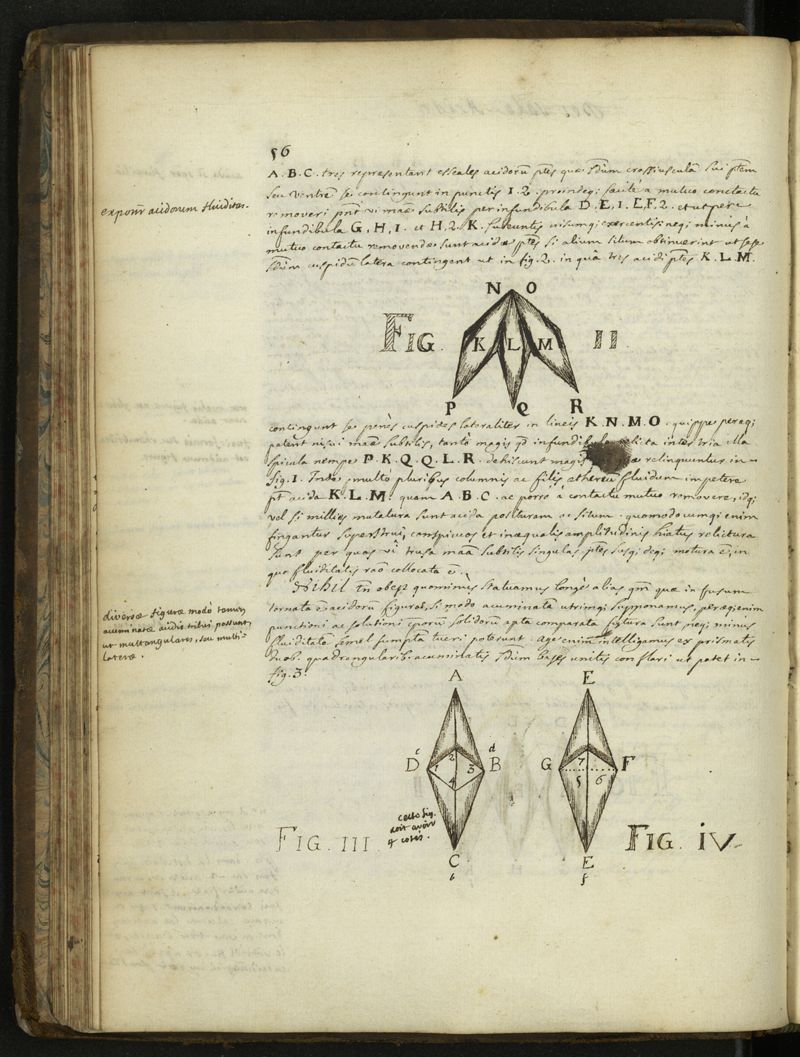 56
A. B. C. tres repræsentant essales acidorū ptes quæ s̄dum crassiusculā sui ptem
seu ventrē se contingunt in punctis 1. 2. proindeq; facilè a mutuo contactu
removeri pn̄t vi māæ subtilis per infundibula D. E, 1. E F. 2. et ut pere
infundibula G, H, 1. et H, 2. K. subeuntis visumq; exercentis: neq; minùs à
mutuo contactu removendæ sunt acidæ ptes si alium situm obtinuerint ut sæpe
s̄dum cuspidū latera contingent ut in fig. 2. in quâ tres acidi ptes K. L. M.
exponīr acidorum fluiditas.
N O
FIG. K L M II
P Q R
contingunt se penès cuspites lateraliter in lineis K. N. M. O. quippe peræq;
patent nisui māæ subtilis, tantò magis qd infundibula relicta inter tria illa
spicula nempe P. K. Q. Q. L. R. dehiscunt magis quæ relinquuntur in
fig. 1. Imo multò pluribus columnis ac filis ethereū fluidum impetere
pt acida K. L. M. quam A. B. C. ac porro a contactu mutuo removere, idq;
vel si millies mutatura sunt acida posituram ac situm. quomodocumq; enim
fingantur superstrui, conspicuos et inæqualis amplitudinis hiatus relictura
sunt per quas vi trusa māa subtilis singulas ptes susq; deq; motura ē, in
quo fluiditatis raō collocata ē.
Nihil tn̄ obest quominùs statuamus longè alias qm̄ quæ in fusum
tornata ē acidorū figuras, si modo acuminata utrimq; supponamus, peræq; enim
punctioni ac solutioni corū solidorū apta comparata futura sunt neq; minus
fluiditatē semel sumptā tueri poterunt. Age enim intelligamus ex prismatis
duob. quadrangularib. acuminatis s̄dum bases unitis conflari ut patet in
fig. 3.
diversæ figuræ modò tamen
acuminatæ acidis tribui possunt
ut multangulares, seu multi-
lateræ.
A E
c d
D 1 2 3 4 B G 7 5 6 F
cette fig.
doit avoir
4 cotes.
FIG. III. FIG. IV
C E
b f